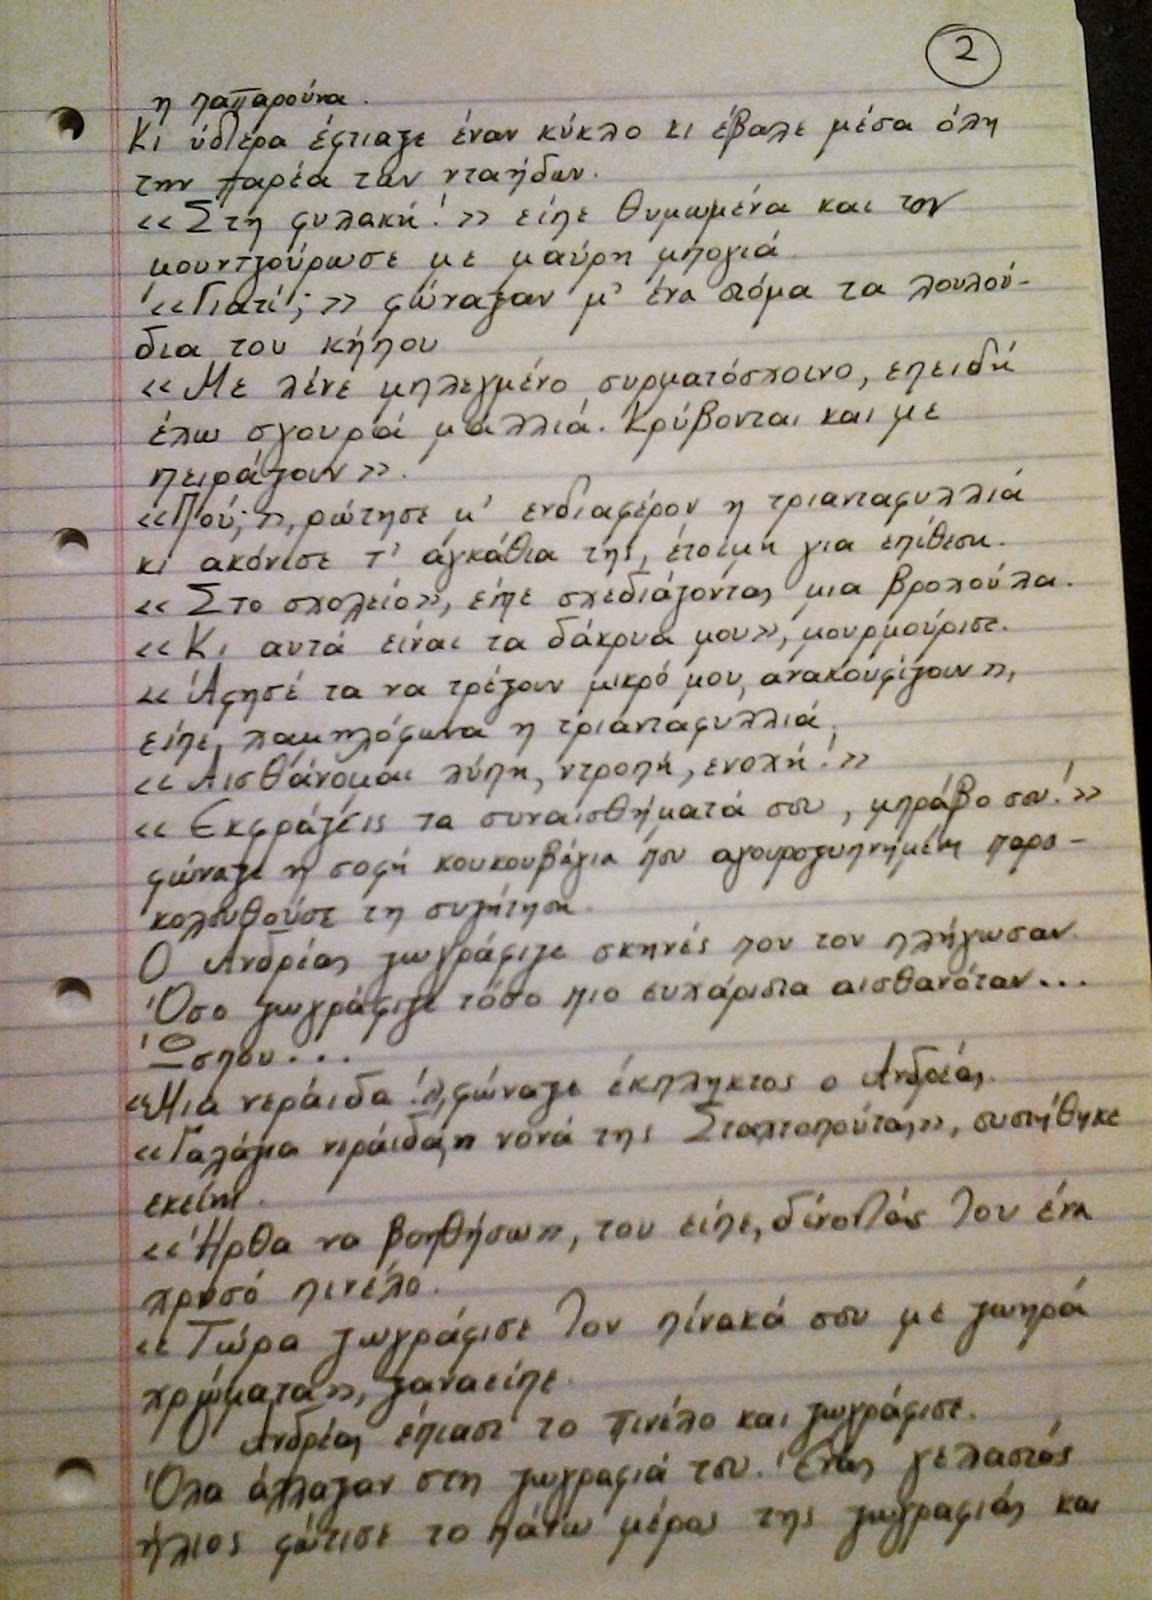 2
η παπαρούνα.
Κι ύστερα έφτιαξε έναν κύκλο κι έβαλε μέσα όλη
την παρέα των νταήδων.
«Στη φυλακή!» είπε θυμωμένα και τον
μουντζούρωσε με μαύρη μπογιά.
«Γιατί;» φώναξαν μ' ένα στόμα τα λουλού-
δια του κήπου
«Με λένε μπλεγμένο συρματόσχοινο, επειδή
έχω σγουρά μαλλιά. Κρύβονται και με
πειράζουν».
«Πού;», ρώτησε μ' ενδιαφέρον η τριανταφυλλιά
κι ακόνισε τ' αγκάθια της, έτοιμη για επίθεση.
«Στο σχολείο», είπε σχεδιάζοντας μια βροχούλα.
«Κι αυτά είναι τα δάκρυα μου», μουρμούρισε.
«Άφησέ τα να τρέξουν μικρό μου, ανακουφίζουν»,
είπε χαμηλόφωνα η τριανταφυλλιά.
«Αισθάνομαι λύπη, ντροπή, ενοχή!»
«Εκφράζεις τα συναισθήματά σου, μπράβο σου!»
φώναξε η σοφή κουκουβάγια που αγουροξυπνημένη παρα-
κολουθούσε τη συζήτηση.
Ο Ανδρέας ζωγράφιζε σκηνές που τον πλήγωσαν.
Όσο ζωγράφιζε τόσο πιο ευχάριστα αισθανόταν...
Ώσπου...
«Μια νεράιδα!», φώναξε έκπληκτος ο Ανδρέας.
«Γαλάζια νεράιδα, η νονά της Σταχτοπούτας», συστήθηκε
εκείνη.
«Ήρθα να βοηθήσω», του είπε, δίνοντάς του ένα
χρυσό πινέλο.
«Τώρα ζωγράφισε τον πίνακά σου με ζωηρά
χρώματα», ξαναείπε.
Ο Ανδρέας έπιασε το πινέλο και ζωγράφισε.
Όλα άλλαξαν στη ζωγραφιά του. Ένας γελαστός
ήλιος φώτισε το πάνω μέρος της ζωγραφιάς και